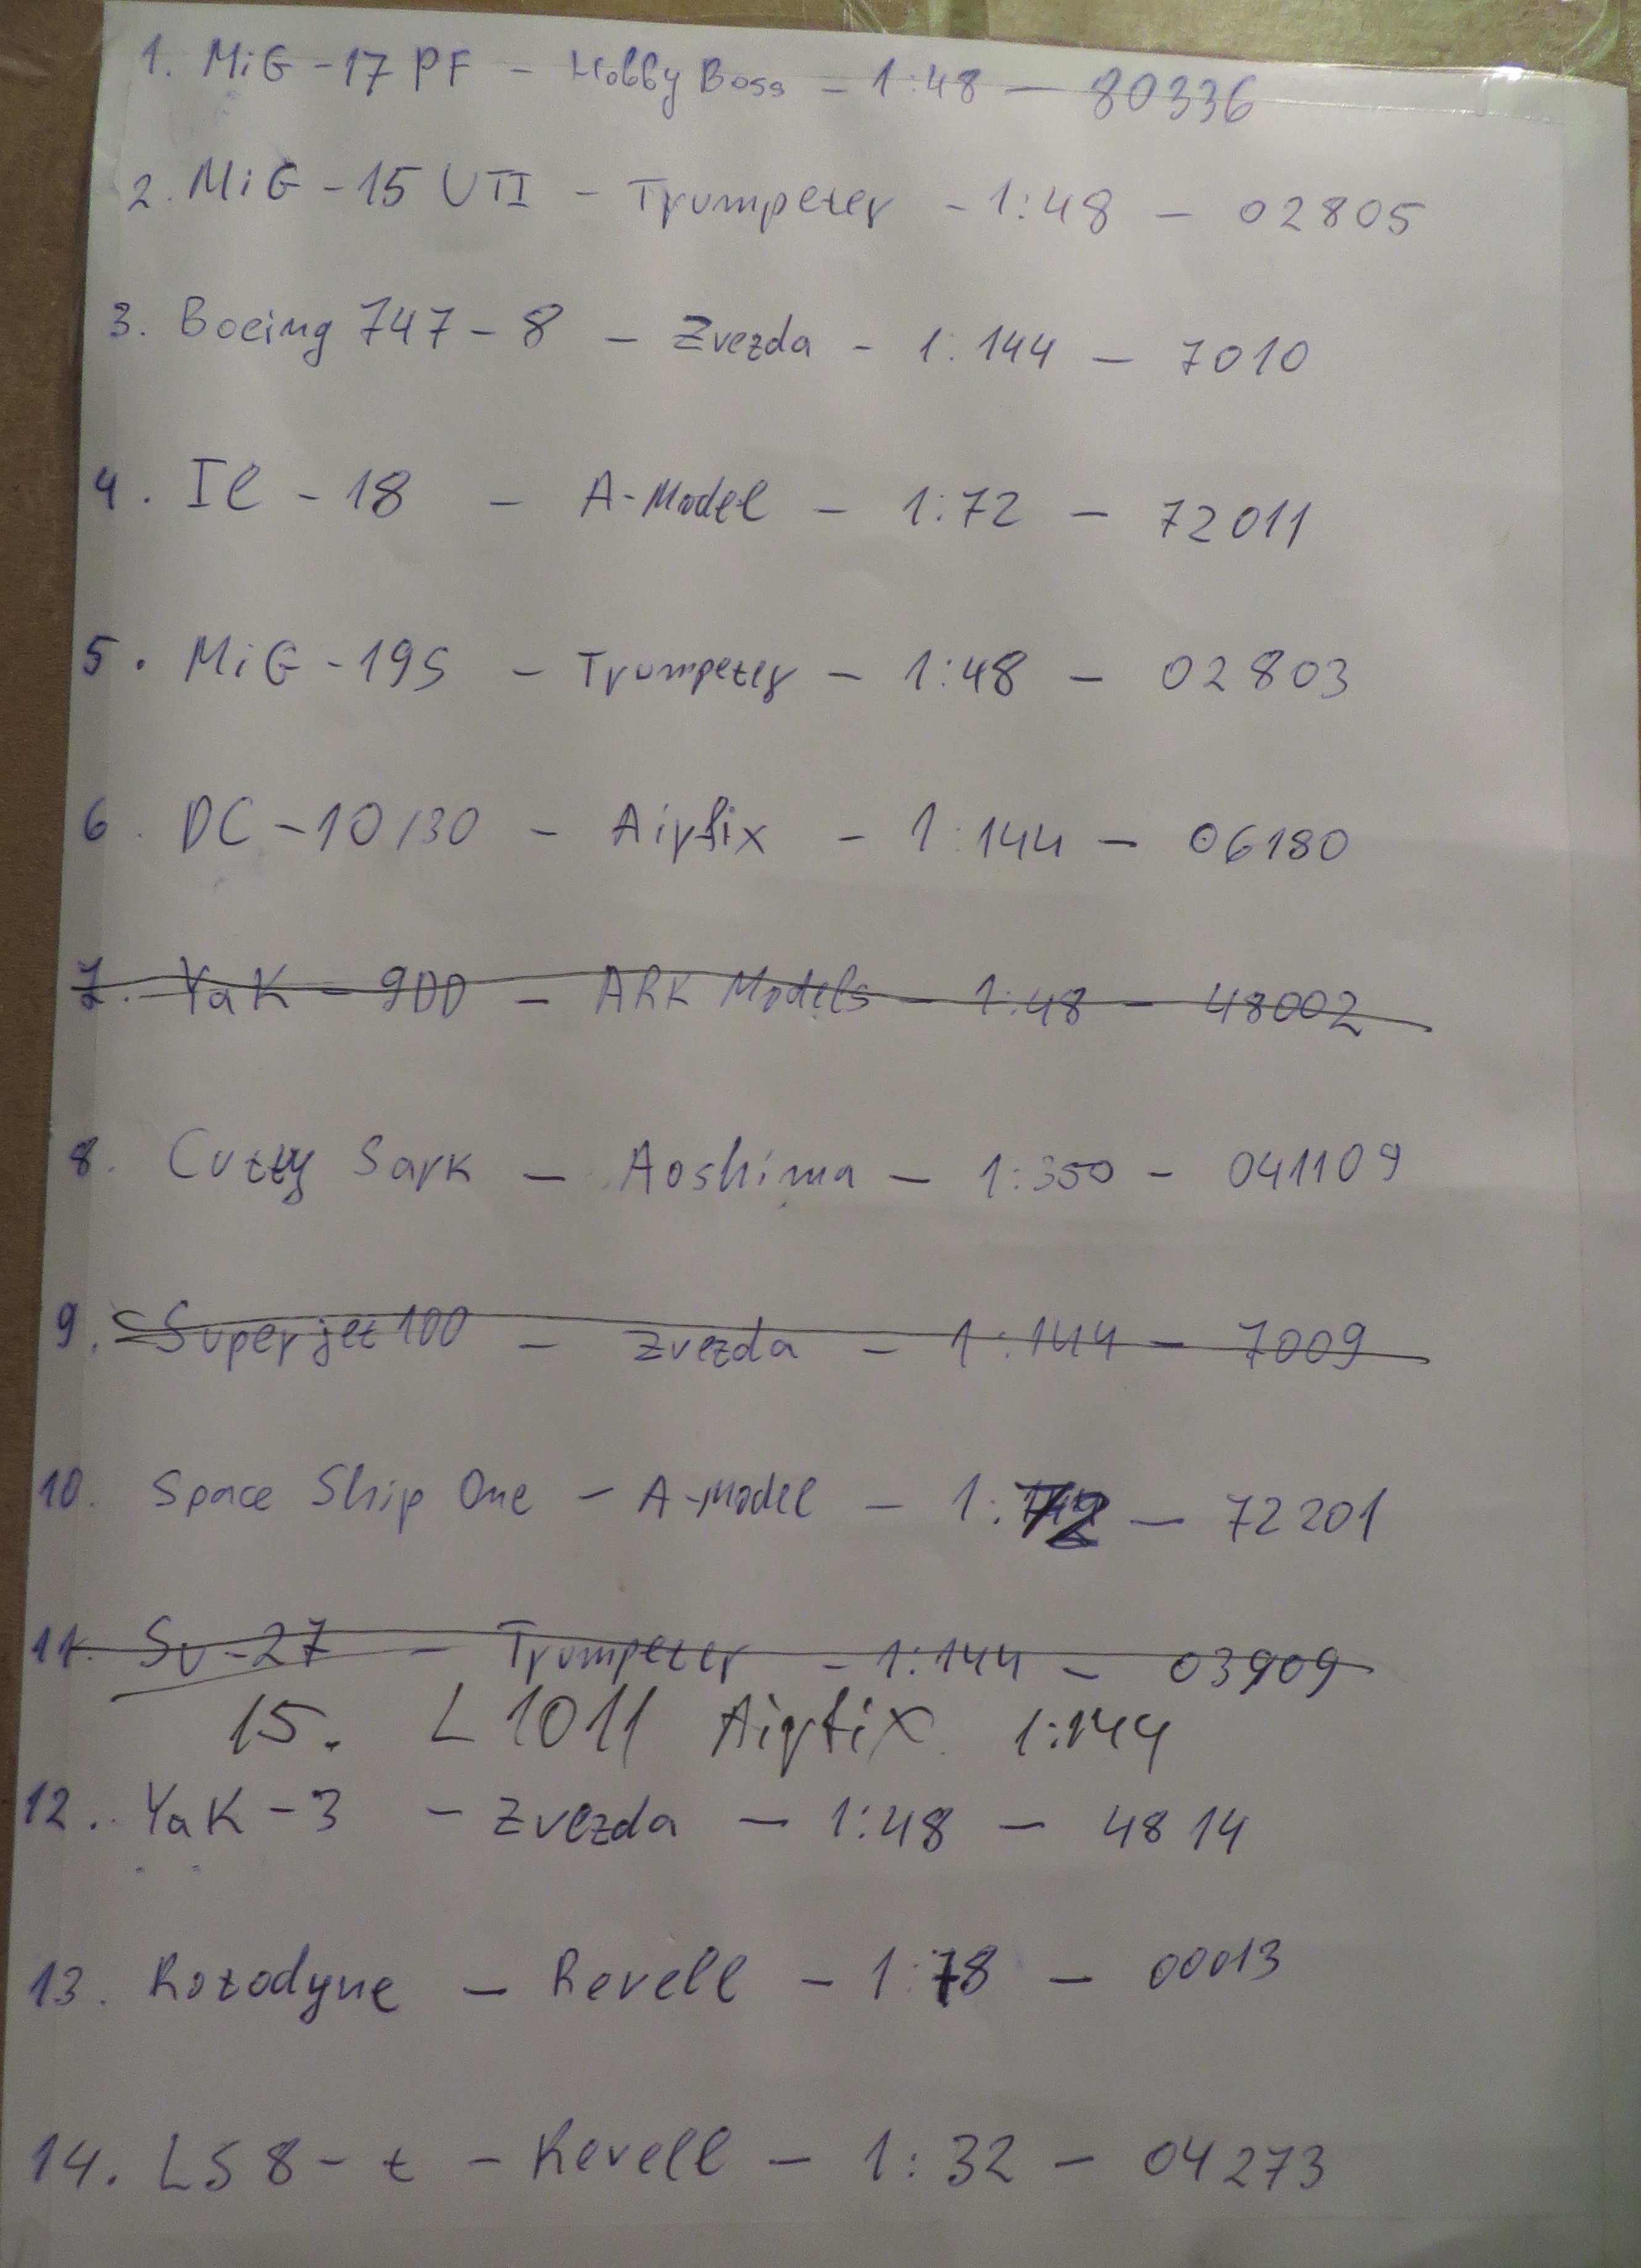 1. MiG-17 PF - Hobby Boss - 1:48 - 80336
2. MiG-15 UTI - Trumpeter - 1:48 - 02805
3. Boeing 747-8 - Zvezda - 1:144 - 7010
4. Il-18 - A-Model - 1:72 - 72011
5. MiG-19S - Trumpeter - 1:48 - 02803
6. DC-10/30 - Airfix - 1:144 - 06180
7. YaK-9DD - ARK Models - 1:48 - 48002
8. Cutty Sark - Aoshima - 1:350 - 041109
9. Superjet 100 - Zvezda - 1:144 - 7009
10. Space Ship One - A-Model - 1:72 - 72201
11. Su-27 - Trumpeter - 1:144 - 03909
15. L 1011 Airfix 1:144
12. YaK-3 - Zvezda - 1:48 - 4814
13. Rotodyne - Revell - 1:78 - 00013
14. LS8-t - Revell - 1:32 - 04273